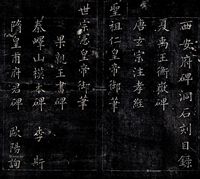 西安府碑洞石刻目錄
夏禹王衡嶽碑
唐玄宗注孝經
聖祖仁皇帝御筆
世宗憲皇帝御筆
果親王書碑
秦嶧山摸本碑 李斯
隋皇甫府君碑 歐陽詢